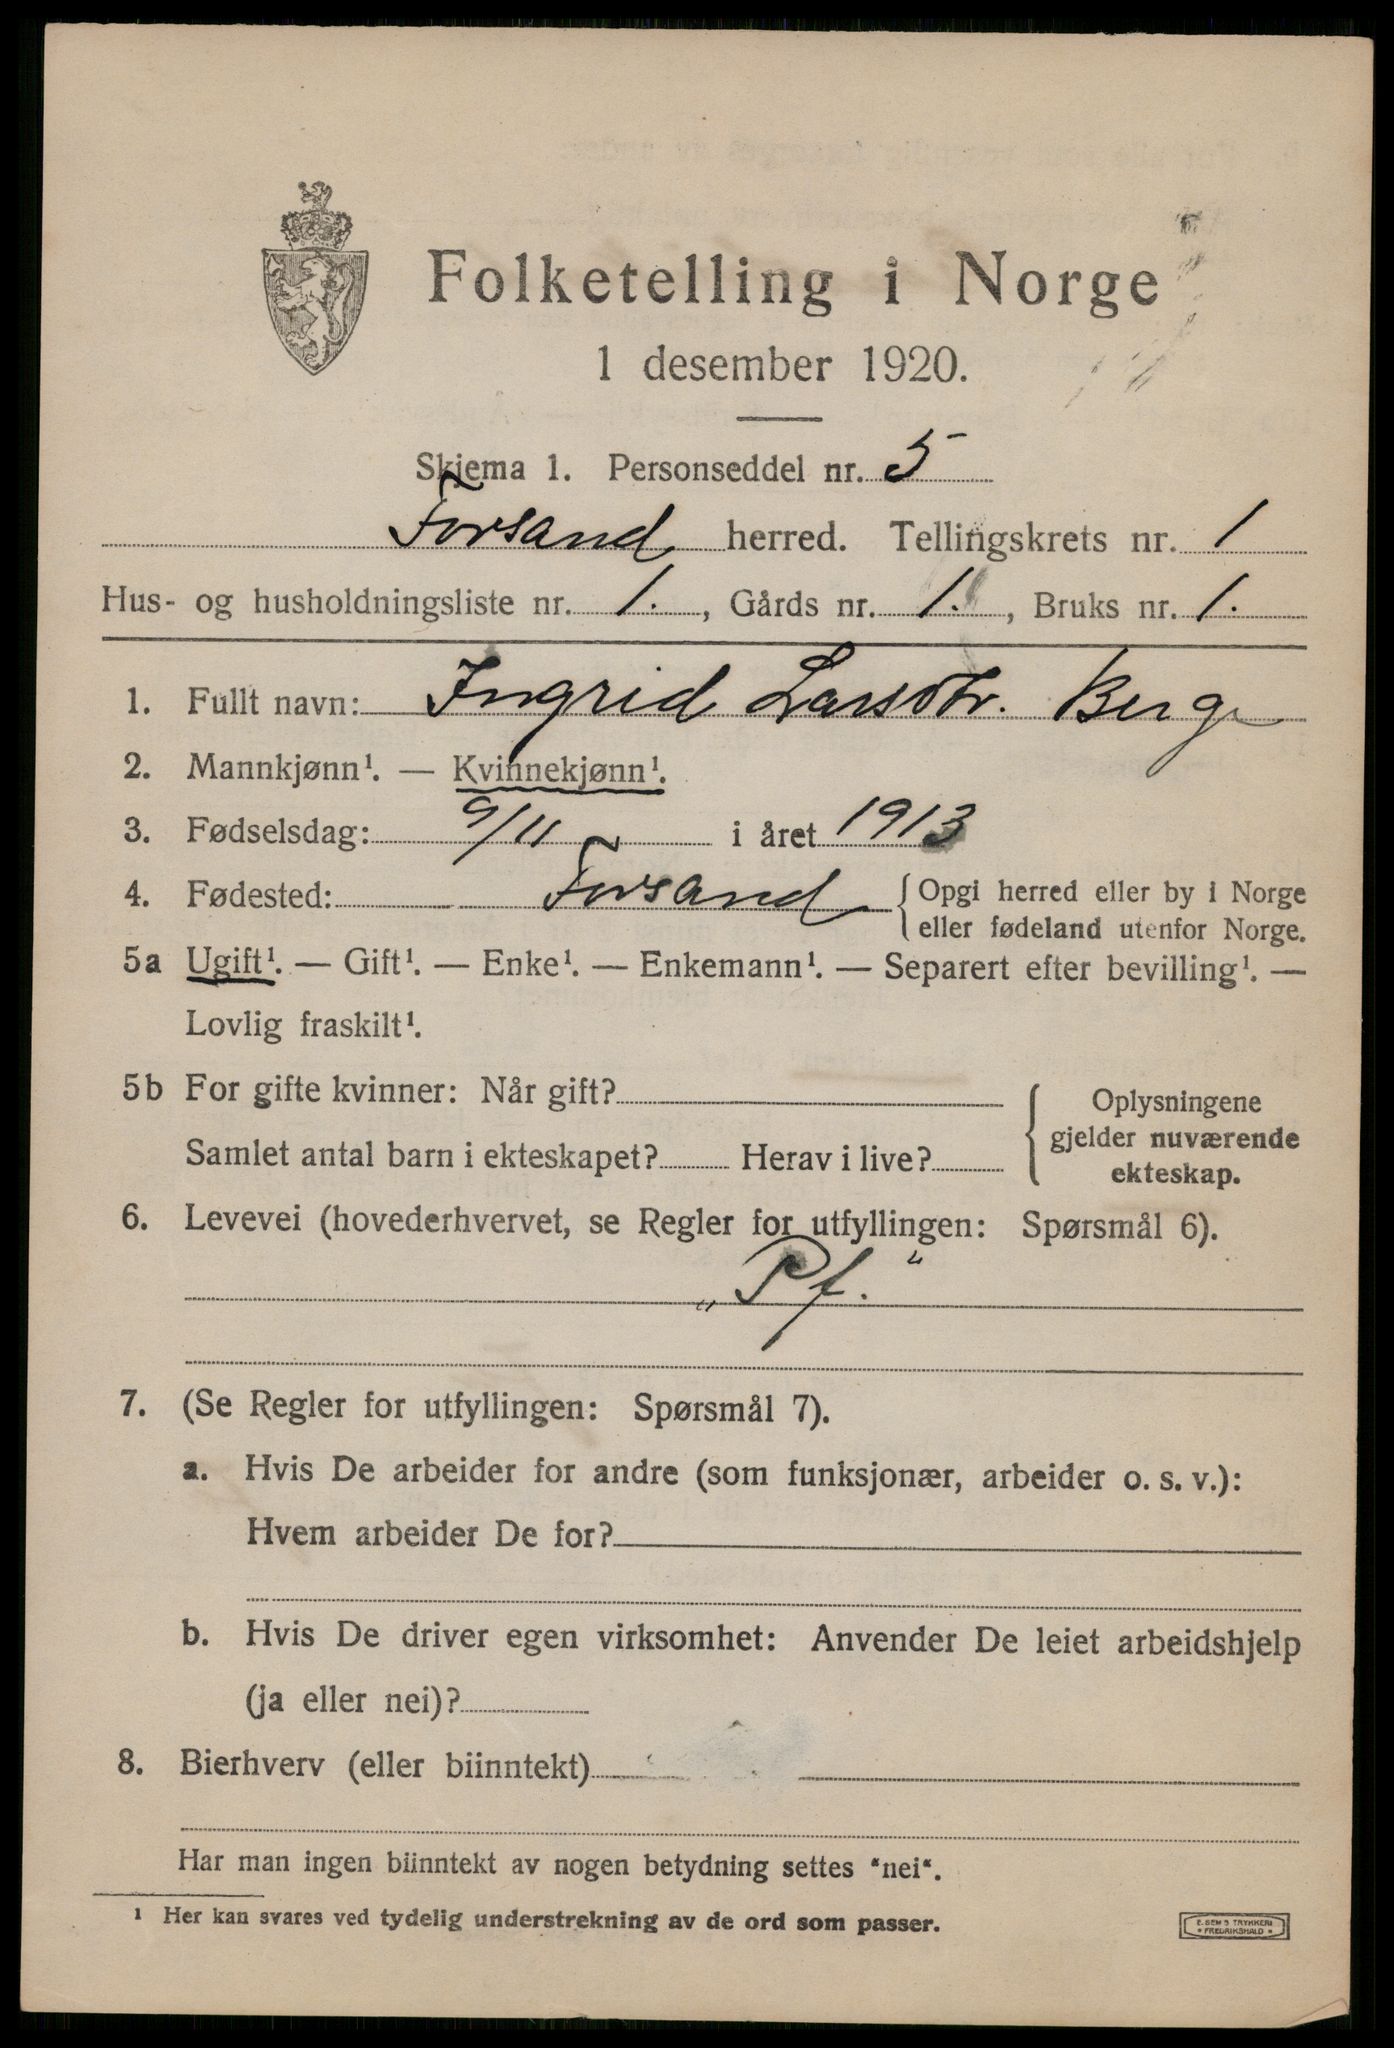 Folketelling i Norge
1 desember 1920.
Skjema 1. Personseddel nr. 5
Forsand herred. Tellingskrets nr. 1
Hus- og husholdningsliste nr. 1., Gårds nr. 1., Bruks nr. 1.
1. Fullt navn: Ingrid Larsdtr. Berge
2. Mannkjønn¹. — Kvinnekjønn¹.
3. Fødselsdag: 9/11 i året 1913
4. Fødested: Forsand { Opgi herred eller by i Norge
eller fødeland utenfor Norge.
5a Ugift¹. — Gift¹. — Enke¹. — Enkemann¹. — Separert efter bevilling¹. —
Lovlig fraskilt¹.
5b For gifte kvinner: Når gift?
Samlet antal barn i ekteskapet? Herav i live?
{ Oplysningene
gjelder nuværende
ekteskap.
6. Levevei (hovederhvervet, se Regler for utfyllingen: Spørsmål 6).
„Pf.“
7. (Se Regler for utfyllingen: Spørsmål 7).
a. Hvis De arbeider for andre (som funksjonær, arbeider o. s. v.):
Hvem arbeider De for?
b. Hvis De driver egen virksomhet: Anvender De leiet arbeidshjelp
(ja eller nei)?
8. Bierhverv (eller biinntekt)
Har man ingen biinntekt av nogen betydning settes “nei“.
¹ Her kan svares ved tydelig understrekning av de ord som passer.
E. SEM'S TRYKKERI
• FREDRIKSHALD •